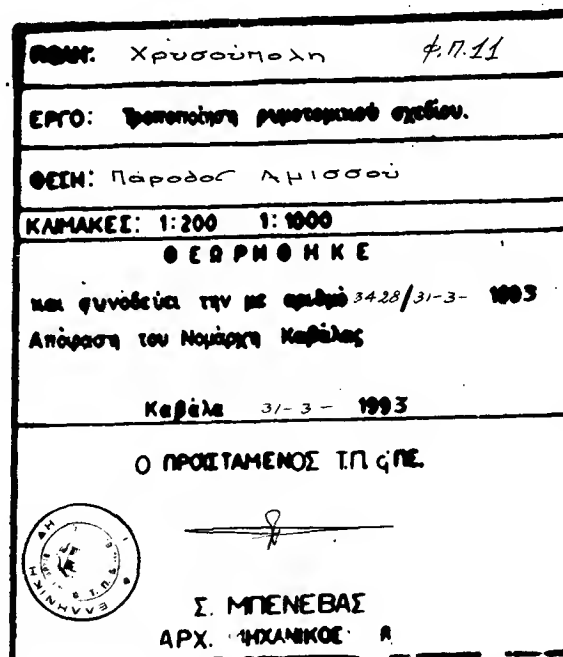 ΠΟΛΗ: Χρυσούπολη Φ.Π.11
ΕΡΓΟ: Τροποποίηση ρυμοτομικού σχεδίου.
ΘΕΣΗ: Πάροδος Αμισσού
ΚΛΙΜΑΚΕΣ: 1:200 1:1000
ΘΕΩΡΗΘΗΚΕ
και συνοδεύει την με αριθμό 3428/31-3- 1993
Απόφαση του Νομάρχη Καβάλας
Καβάλα 31-3- 1993
Ο ΠΡΟΪΣΤΑΜΕΝΟΣ Τ.Π. ΠΕ.
ΕΛΛΗΝΙΚΗ
Σ. ΜΠΕΝΕΒΑΣ
ΑΡΧ. ΜΗΧΑΝΙΚΟΣ